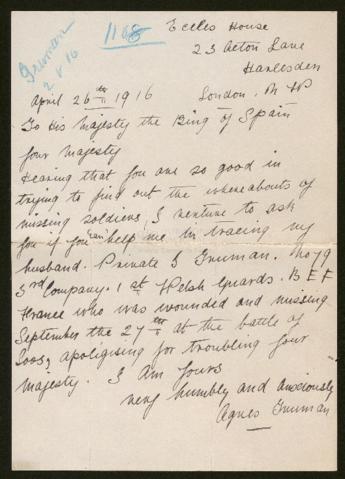 Truman
2 5 16
1108
Eccles House
23 Acton Lane
Harlesden
London. N W
April 26th 1916
To His Majesty the King of Spain
Your Majesty
Hearing that you are so good in
trying to find out the whereabouts of
missing soldiers, I venture to ask
you if you can help me in tracing my
husband. Private J Truman. No 79
3rd Company. 1st Welsh Guards. B E F
France who was wounded and missing
September the 27th at the battle of
Loos, apoligising for troubling your
Majesty. I am yours
very humbly and anxiously
Agnes Truman